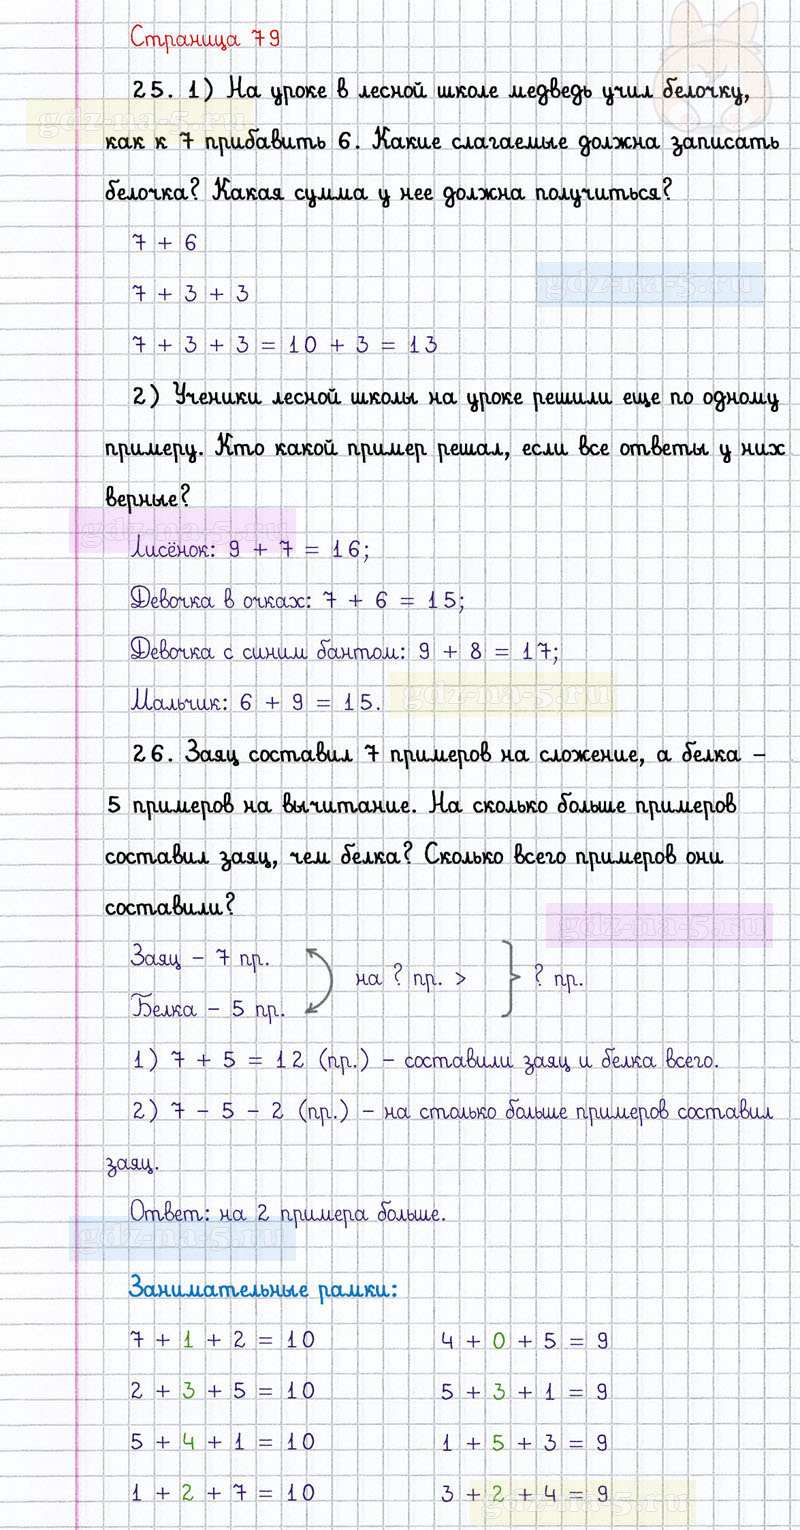 Страница 79
25. 1) На уроке в лесной школе медведь учил белочку,
gdz-na-5.ru
как к 7 прибавить 6. Какие слагаемые должна записать
белочка? Какая сумма у нее должна получиться?
7 + 6
gdz-na-5.ru
7 + 3 + 3
7 + 3 + 3 = 10 + 3 = 13
2) Ученики лесной школы на уроке решили еще по одному
примеру. Кто какой пример решал, если все ответы у них
верные?
gdz-na-5.ru
Лисёнок: 9 + 7 = 16;
Девочка в очках: 7 + 6 = 15;
Девочка с синим бантом: 9 + 8 = 17;
Мальчик: 6 + 9 = 15.
gdz-na-5.ru
26. Заяц составил 7 примеров на сложение, а белка –
5 примеров на вычитание. На сколько больше примеров
составил заяц, чем белка? Сколько всего примеров они
составили?
gdz-na-5.ru
Заяц – 7 пр.
на ? пр. >
? пр.
Белка – 5 пр.
1) 7 + 5 = 12 (пр.) – составили заяц и белка всего.
2) 7 – 5 – 2 (пр.) – на столько больше примеров составил
заяц.
Ответ: на 2 примера больше.
gdz-na-5.ru
Занимательные рамки:
7 + 1 + 2 = 10 4 + 0 + 5 = 9
2 + 3 + 5 = 10 5 + 3 + 1 = 9
5 + 4 + 1 = 10 1 + 5 + 3 = 9
1 + 2 + 7 = 10 3 + 2 + 4 = 9
gdz-na-5.ru